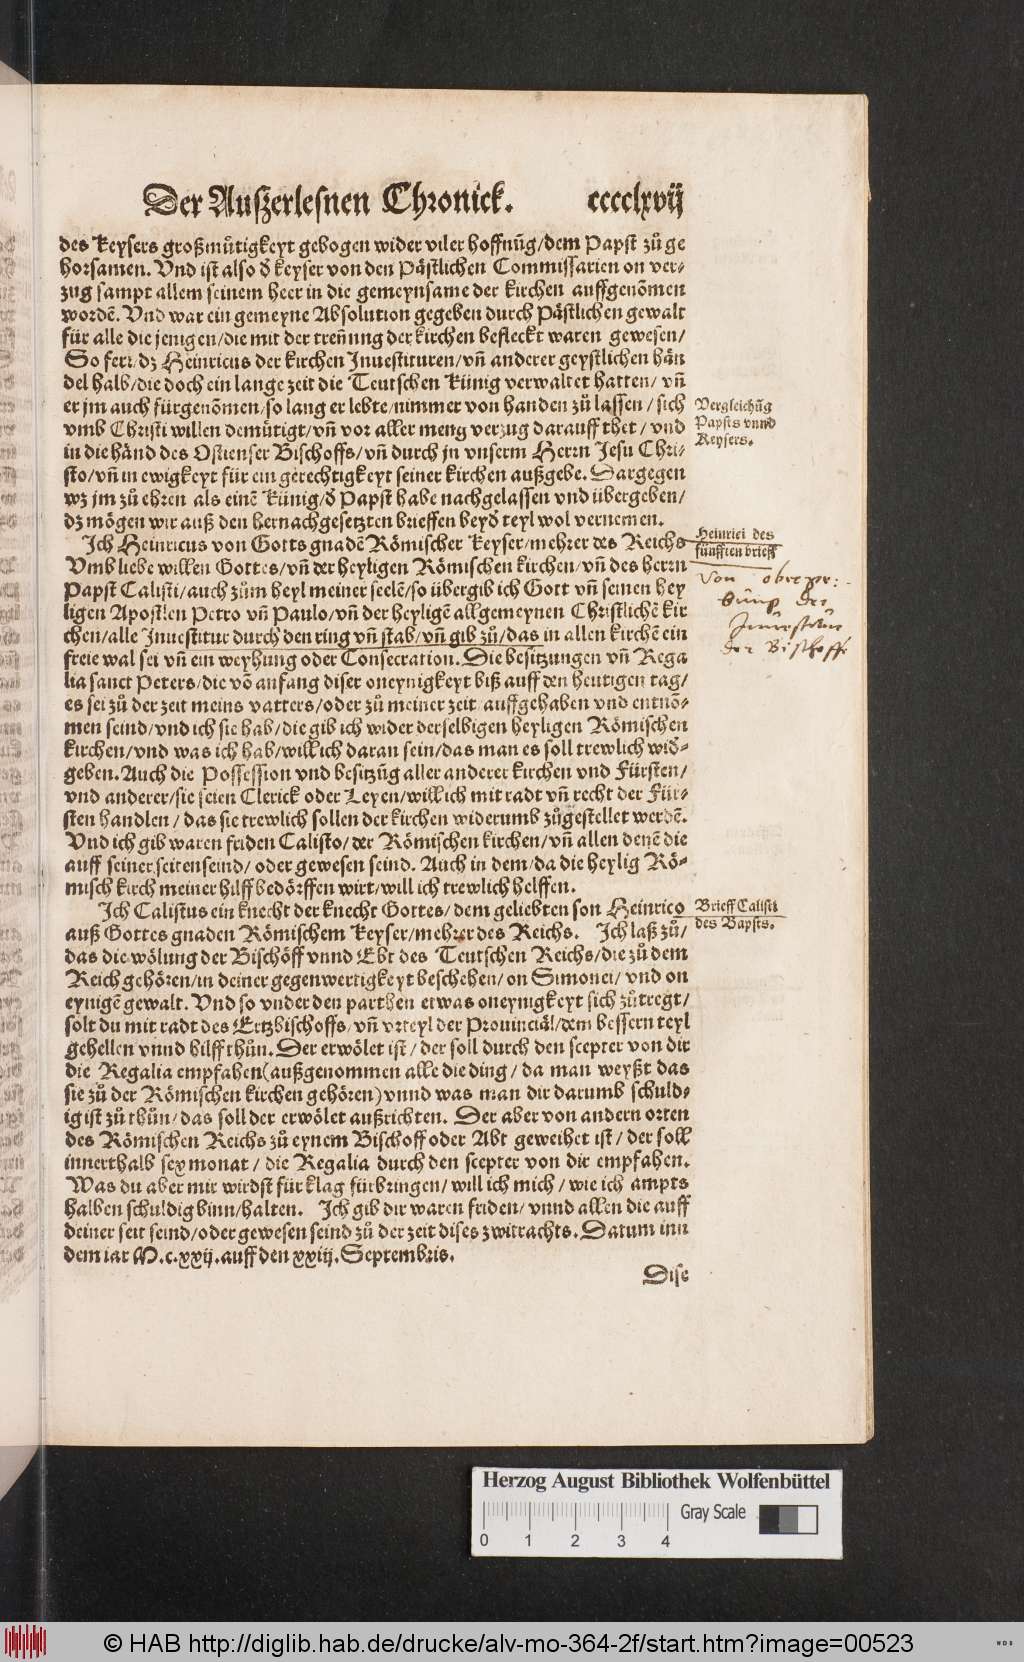 Der Auszerlesnen Chronick. ccccxlvij
des Keysers großmůtigkeyt gebogen wider viler hoffnūg/dem Papst zů ge
horsamen. Vnd ist also d̄ keyser von den Påstlichen Commissarien on ver⸗
zug sampt allem seinem heer in die gemeynsame der kirchen auffgenōmen
wordē. Vnd war ein gemeyne Absolution gegeben durch Påstlichen gewalt
für alle die jenigen/die mit der treñung der kirchen befleckt waren gewesen/
So ferr/dz Heinricus der kirchen Inuestituren/vñ anderer geystlichen hån
del halb/die doch ein lange zeit die Teutschen Künig verwaltet hatten/vñ
er jm auch fürgenōmen/so lang er lebte/nimmer von handen zů lassen/sich
vmb Christi willen demůtigt/vñ vor aller meng verzug darauff thet/vnd
in die hånd des Ostienser Bischoffs/vñ durch jn vnserm Herrn Jesu Chri⸗
sto/vñ in ewigkeyt für ein gerechtigkeyt seiner kirchen außgebe. Dargegen
wz jm zů ehren als einē Künig/d̄ Papst habe nachgelassen vnd übergeben/
dz mögen wir auß den hernachgesetzten brieffen beyd̄ teyl wol vernemen.
Vergleichūg
Papsts vnnd
Keysers.
Ich Heinricus von Gotts gnadē Römischer Keyser/mehrer des Reichs
Vmb liebe willen Gottes/vñ der heyligen Römischen kirchen/vñ des herrn
Papst Calisti/auch zům heyl meiner seelē/so übergib ich Gott vñ seinen hey
ligen Apostlen Petro vñ Paulo/vñ der heyligē allgemeynen Christlichē kir
chen/alle Inuestitur durch den ring vñ stab/vñ gib zů/das in allen kirchē ein
freie wal sei vñ ein weyhung oder Consecration. Die besitzungen vñ Rega
lia sanct Peters/die vō anfang diser oneynigkeyt biß auff den heutigen tag/
es sei zů der zeit meins vatters/oder zů meiner zeit auffgehaben vnd entnō⸗
men seind/vnd ich sie hab/die gib ich wider derselbigen heyligen Römischen
kirchen/vnd was ich hab/will ich daran sein/das man es soll trewlich wid̄⸗
geben. Auch die Possession vnd besitzūg aller anderer kirchen vnd Fürsten/
vnd anderer/sie seien Clerick oder Leyen/will ich mit radt vñ recht der Für⸗
sten handlen/das sie trewlich sollen der kirchen widerumb zůgestellet werdē.
Vnd ich gib waren friden Calisto/der Römischen kirchen/vñ allen denē die
auff seiner seiten seind/oder gewesen seind. Auch in dem/da die heylig Rö⸗
misch kirch meiner hilff bedörffen wirt/will ich trewlich helffen.
Heinrici des
fünfften brieff
von
der
Inuestitur
der Bischoffe
Ich Calistus ein knecht der knecht Gottes/dem geliebten son Heinrico
auß Gottes gnaden Römischem Keyser/mehrer des Reichs. Ich laß zů/
das die wölung der Bischöff vnnd Ebt des Teutschen Reichs/die zů dem
Reich gehören/in deiner gegenwertigkeyt beschehen/on Simonei/vnd on
eynigē gewalt. Vnd so vnder den parthen etwas oneynigkeyt sich zůtregt/
solt du mit radt des Ertzbischoffs/vñ vrteyl der Prouinciål/dem bessern teyl
gehellen vnnd hilff thůn. Der erwölet ist/der soll durch den scepter von dir
die Regalia empfahen(außgenommen alle die ding/da man weyßt das
sie zů der Römischen kirchen gehören)vnnd was man dir darumb schuld⸗
ig ist zů thůn/das soll der erwölet außrichten. Der aber von andern orten
des Römischen Reichs zů eynem Bischoff oder Abt geweihet ist/der soll
innerthalb sex monat/die Regalia durch den scepter von dir empfahen.
Was du aber mir wirdst für klag fürbringen/will ich mich/wie ich ampts
halben schuldig binn/halten. Ich gib dir waren friden/vnnd allen die auff
deiner seit seind/oder gewesen seind zů der zeit dises zwitrachts. Datum inn
dem iar M.c.xxij.auff den xxiij. Septembris.
Brieff Calisti
des Bapsts.
Dise
Herzog August Bibliothek Wolfenbüttel
0 1 2 3 4 Gray Scale
© HAB http://diglib.hab.de/drucke/alv-mo-364-2f/start.htm?image=00523